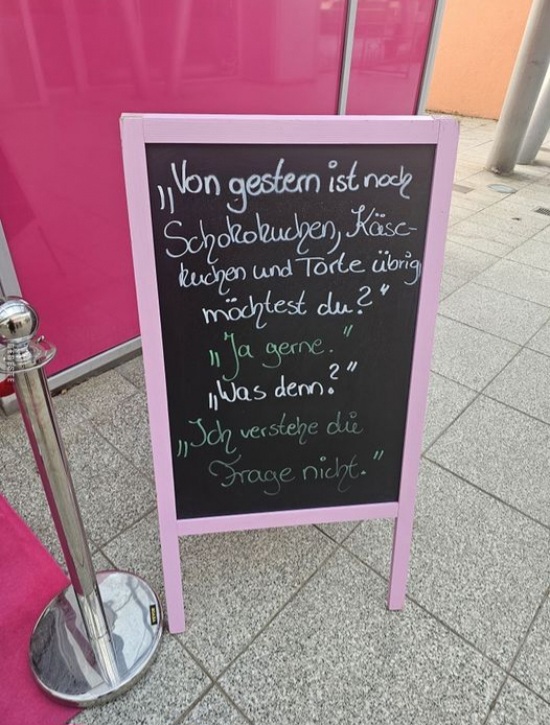 „Von gestern ist noch
Schokokuchen, Käse-
kuchen und Torte übrig,
möchtest du?"
„Ja gerne."
„Was denn?"
„Ich verstehe die
Frage nicht."